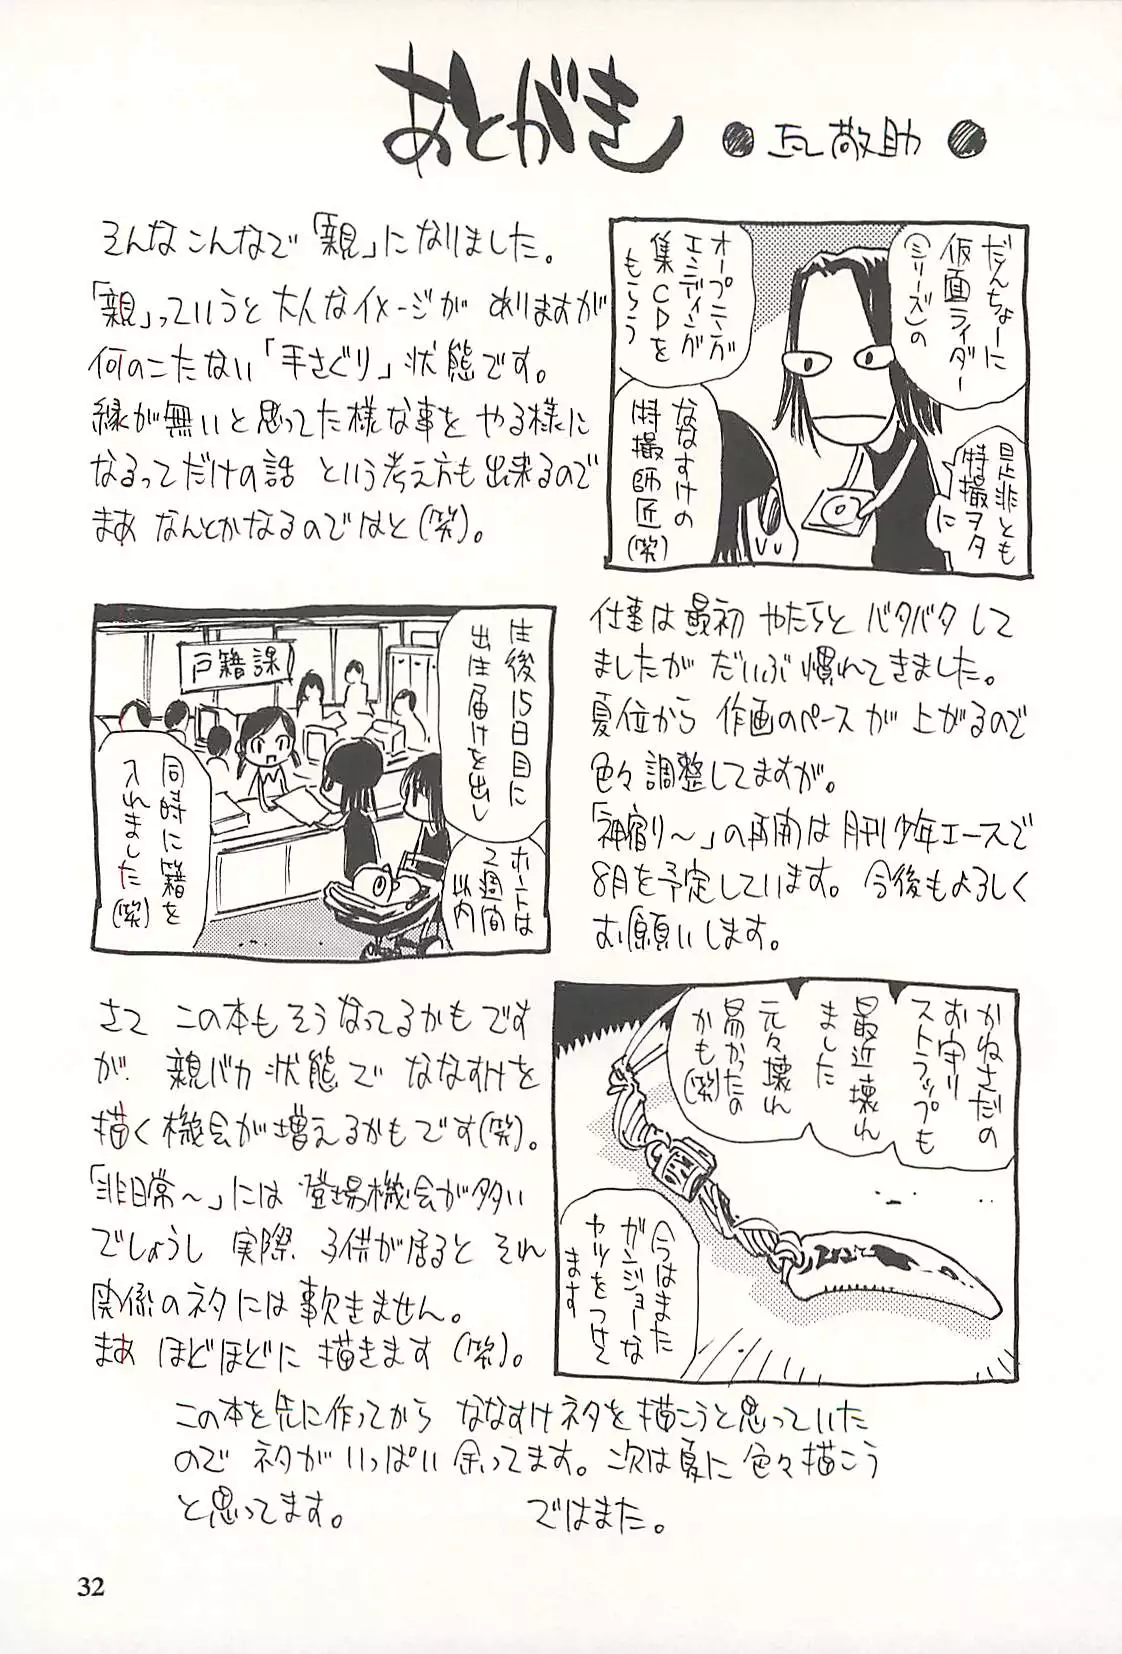 あとがき ●瓦敬助●
そんなこんなで「親」になりました。
「親」っていうと大人なイメージがありますが
何のこたない「手さぐり」状態です。
縁が無いと思ってた様な事をやる様に
なるってだけの話 という考え方も出来るので
まあ なんとかなるのではと(笑)。
だんちょーに
仮面ライダー
(シリーズ)の
オープニング
エンディング
集CDを
もらう
是非とも
特撮ヲタ
に
ななすけの
特撮師匠
(笑)
仕事は最初 やたらと バタバタして
ましたが だいぶ慣れてきました。
夏位から 作画のペースが上がるので
色々調整してますが。
「神宿り〜」の再開は月刊少年エースで
8月を予定しています。今後もよろしく
お願いします。
生後15日目に
出生届けを出し
ホントは
2週間
以内
戸籍課
同時に籍を
入れました
(笑)
さて この本もそうなってるかもです
が 親バカ状態で ななすけを
描く機会が増えるかもです(笑)。
「非日常〜」には 登場機会が多い
でしょうし 実際 子供が居ると それ
関係のネタには事欠きません。
まあ ほどほどに 描きます(笑)。
かねさだの
お守り
ストラップも
最近壊れ
ました
元々壊れ
易かったの
かも(笑)
今はまた
ガンジョーな
ヤツをつけて
ます
この本を先に作ってから ななすけネタを描こうと思っていた
ので ネタがいっぱい余ってます。次は夏に色々描こう
と思ってます。 ではまた。
32